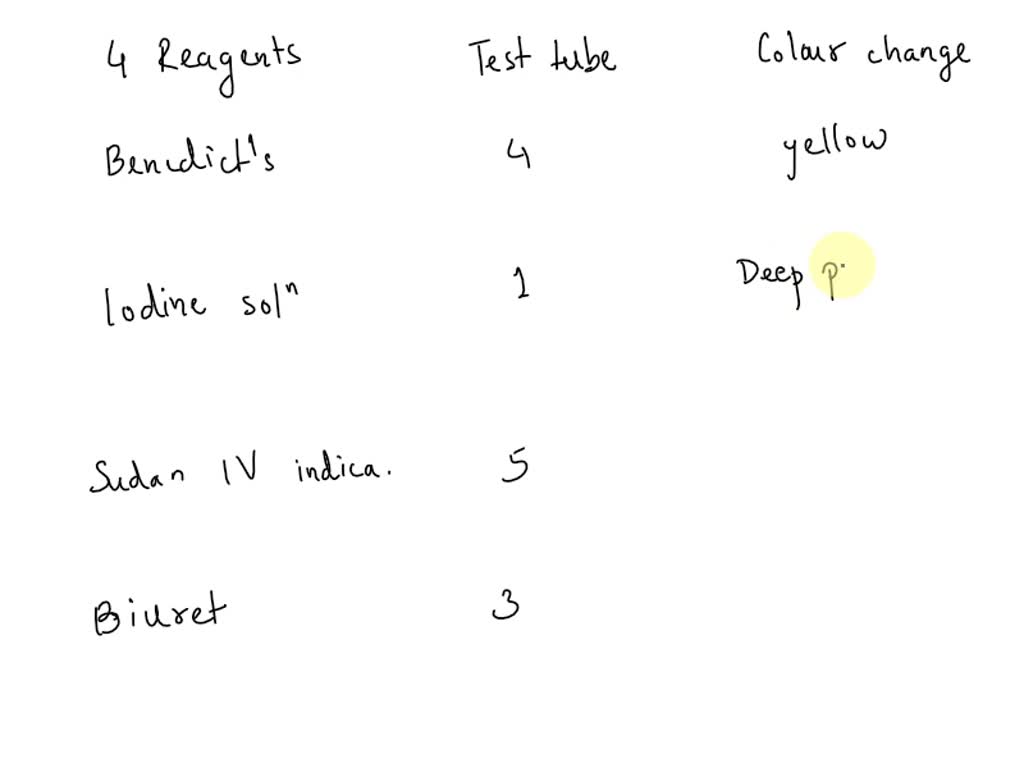 4 Reagents Test tube Colour change
Benedict's 4 yellow
Iodine solⁿ 1 Deep p
Sudan IV indica. 5
Biuret 3